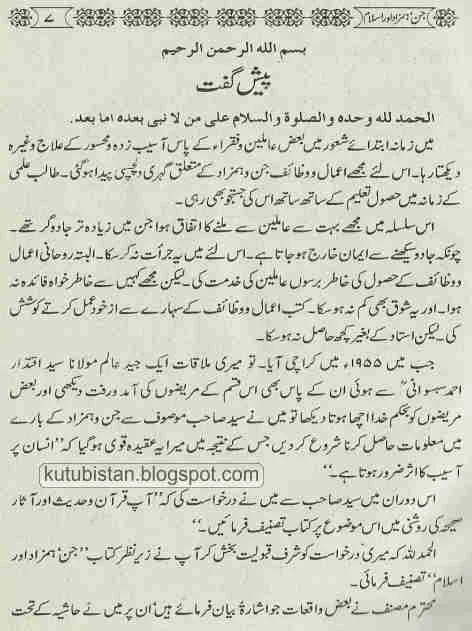 جن، ہمزاد اور اسلام ۷
بسم اللہ الرحمن الرحیم
پیش گفت
الحمد للہ وحدہ والصلوة والسلام علی من لا نبی بعدہ اما بعد.
میں زمانہ ابتدائے شعور میں بعض عاملین و فقراء کے پاس آسیب زدہ و مسحور کے علاج وغیرہ
دیکھتا رہا۔ اس لئے مجھے اعمال و وظائف جن و ہمزاد کے متعلق گہری دلچسپی پیدا ہوگئی۔ طالب علمی
کے زمانہ میں حصول تعلیم کے ساتھ ساتھ اس کی جستجو بھی رہی۔
اس سلسلہ میں مجھے بہت سے عاملین سے ملنے کا اتفاق ہوا جن میں زیادہ تر جادوگر تھے۔
چونکہ جادو سیکھنے سے ایمان خارج ہو جاتا ہے۔ اس لئے میں یہ جرأت نہ کر سکا۔ البتہ روحانی اعمال
و وظائف کے حصول کی خاطر برسوں عاملین کی خدمت کی۔ لیکن مجھے کہیں سے خاطر خواہ فائدہ نہ
ہوا۔ اور یہ شوق بھی کم نہ ہو سکا۔ کتب اعمال و وظائف کے سہارے سے از خود عمل کرنے کوشش
کی۔ لیکن استاد کے بغیر کچھ حاصل نہ ہو سکا۔
جب میں ۱۹۵۵ء میں کراچی آیا۔ تو میری ملاقات ایک جید عالم مولانا سید اقتدار
احمد سہسوانیؒ سے ہوئی ان کے پاس بھی اس قسم کے مریضوں کی آمد ورفت دیکھی اور بعض
مریضوں کو بحکم خدا اچھا ہوتا دیکھا تو میں نے سید صاحب موصوف سے جن و ہمزاد کے بارے
میں معلومات حاصل کرنا شروع کر دیں جس کے نتیجہ میں میرا یہ عقیدہ قوی ہوگیا کہ ”انسان پر
آسیب کا اثر ضرور ہوتا ہے۔“
kutubistan.blogspot.com
اس دوران میں سید صاحب سے میں نے درخواست کی کہ ”آپ قرآن و حدیث اور آثار
صحیحہ کی روشنی میں اس موضوع پر کتاب تصنیف فرمائیں۔“
الحمد للہ کہ میری درخواست کو شرف قبولیت بخش کر آپ نے زیر نظر کتاب ”جن، ہمزاد اور
اسلام“ تصنیف فرمائی۔
محترم مصنف نے بعض واقعات جو اشارۃً بیان فرمائے ہیں، ان پر میں نے حاشیہ کے تحت